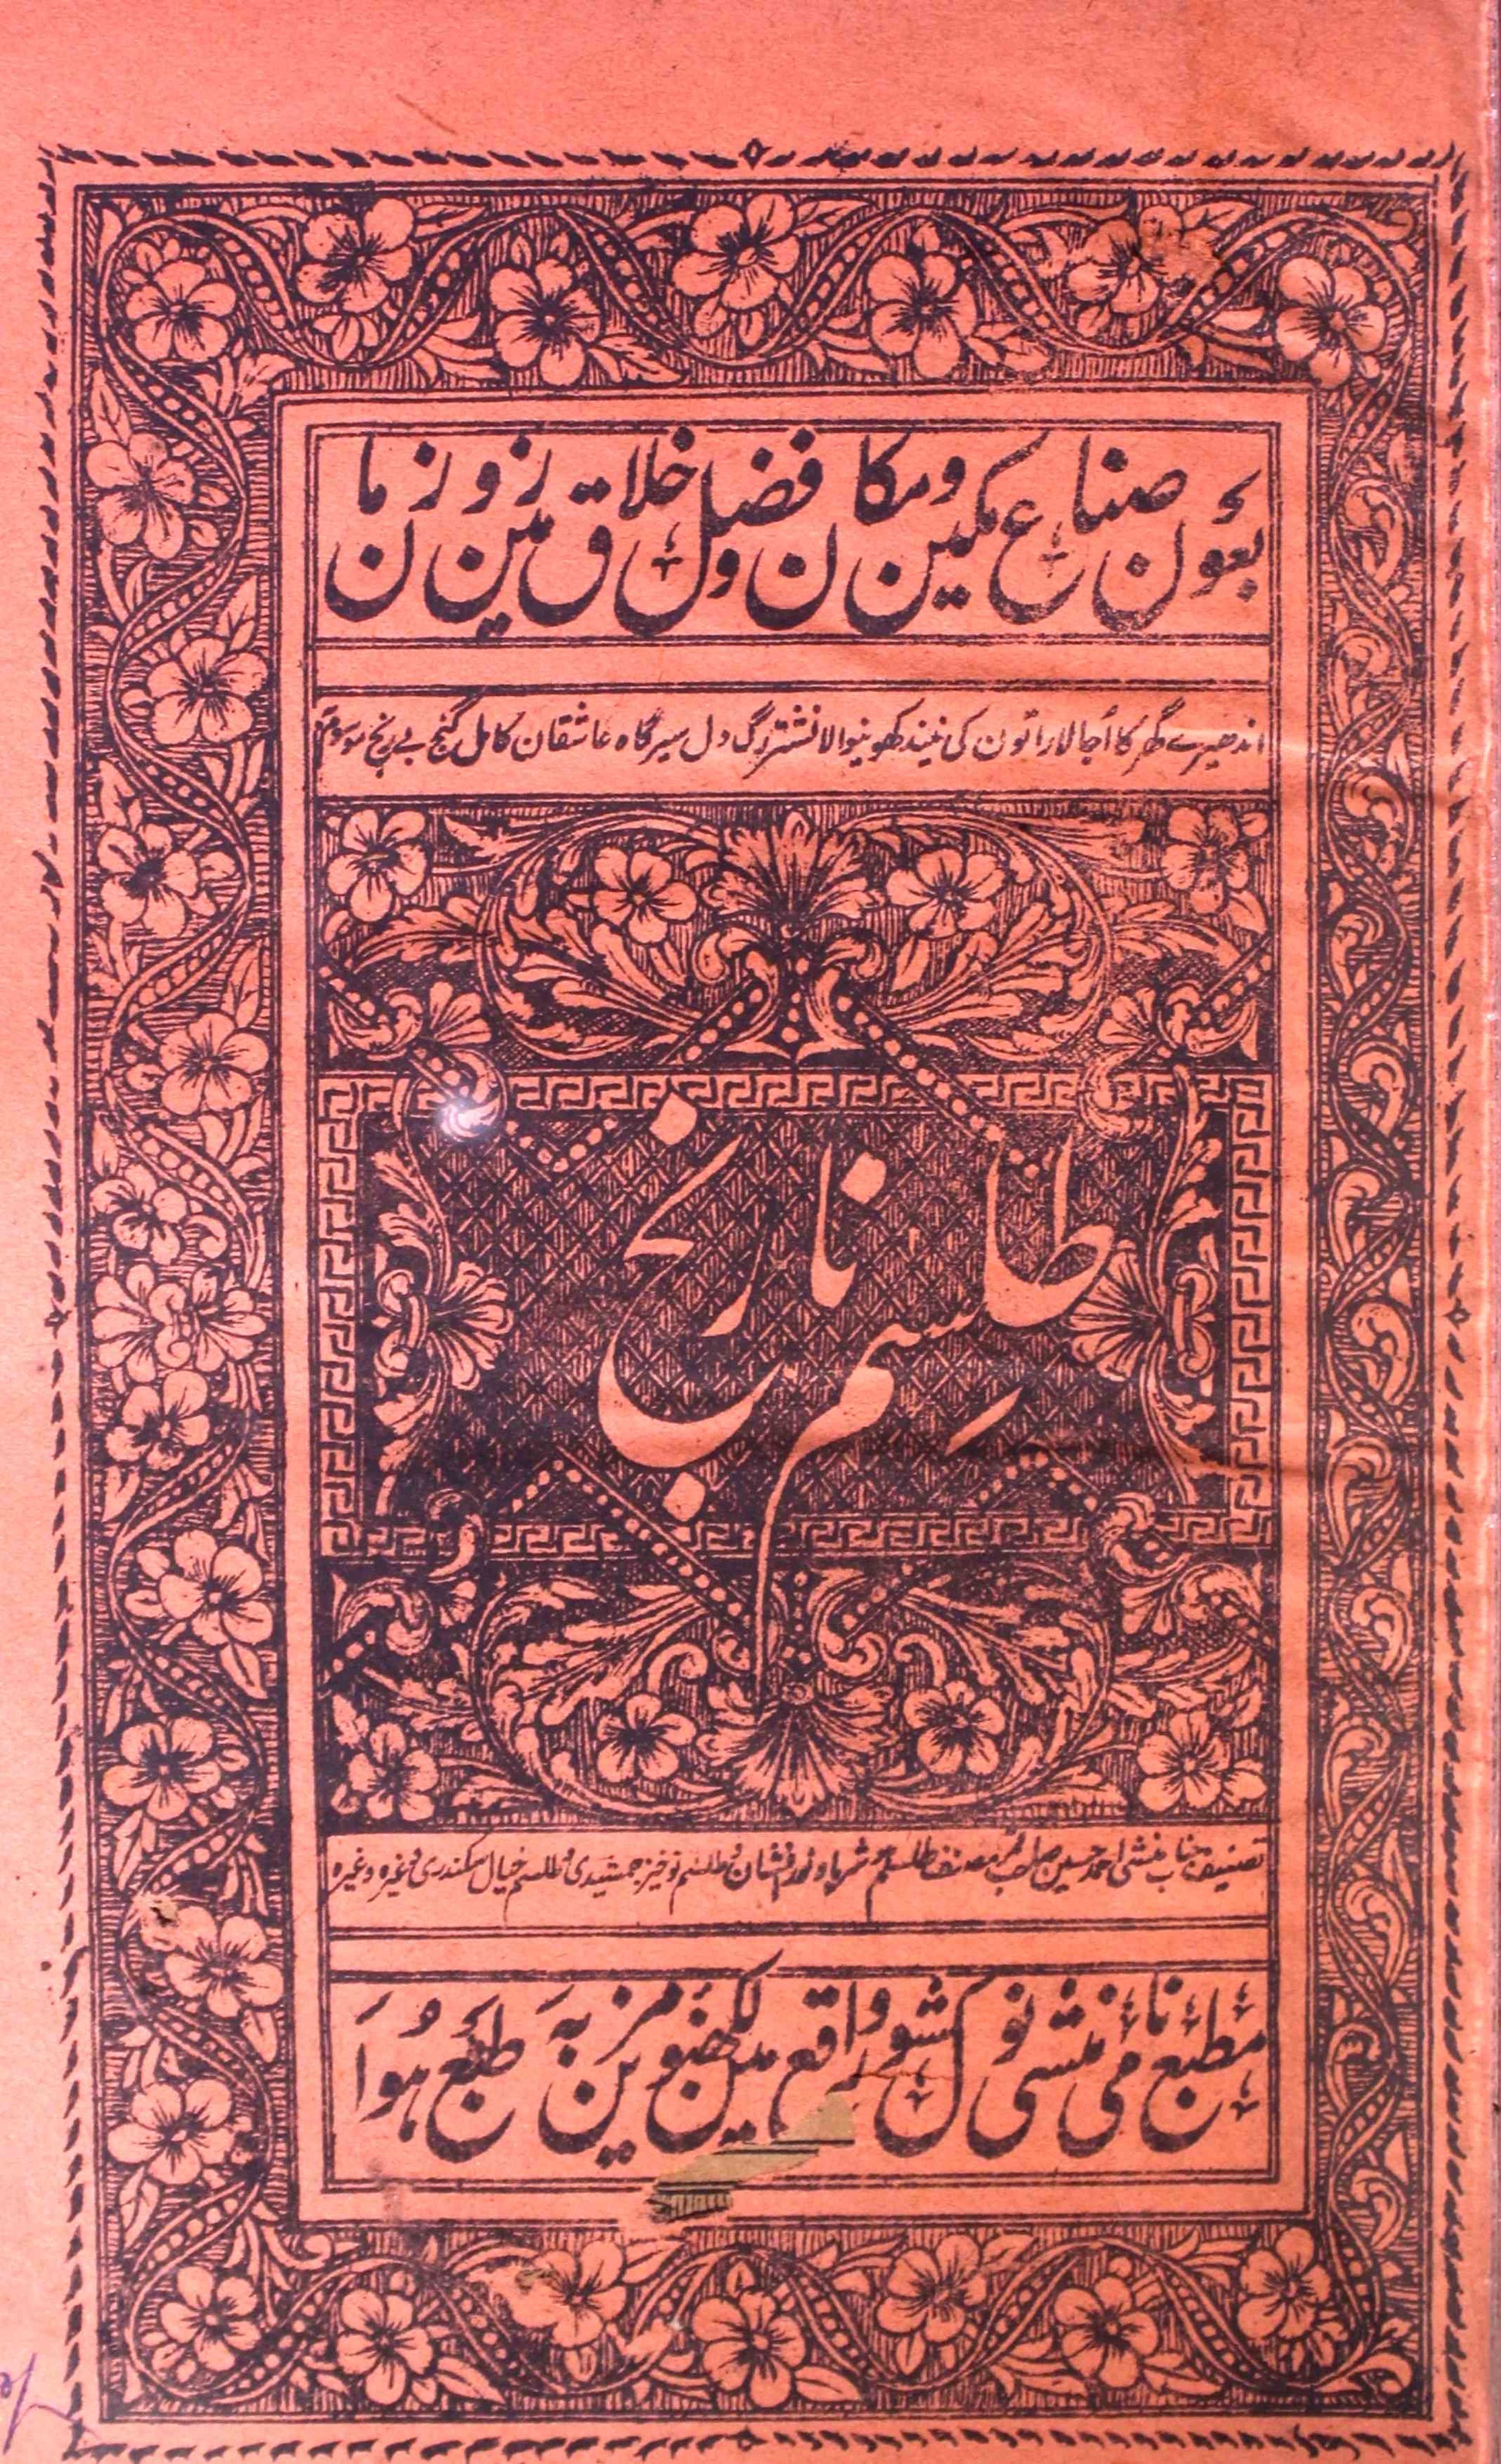 بعون صناع مکین و مکان و فضل خلاق زمین و زمان
اندھیرے گھر کا اُجالا راتون کی نیند کھونیوالا نشتر رگ دل سیرگاہ عاشقان کامل گنج بے رنج موسوم بہ
طلسم نارنج
تصنیف جناب منشی احمد حسین صاحب قمر مصنف طلسم ہوشربا و نورافشان و طلسم نوخیز جمشیدی و طلسم خیال سکندری وغیرہ وغیرہ
مطبع نامی منشی نول کشور واقع لکھنؤ مین بزیب طبع ہوا